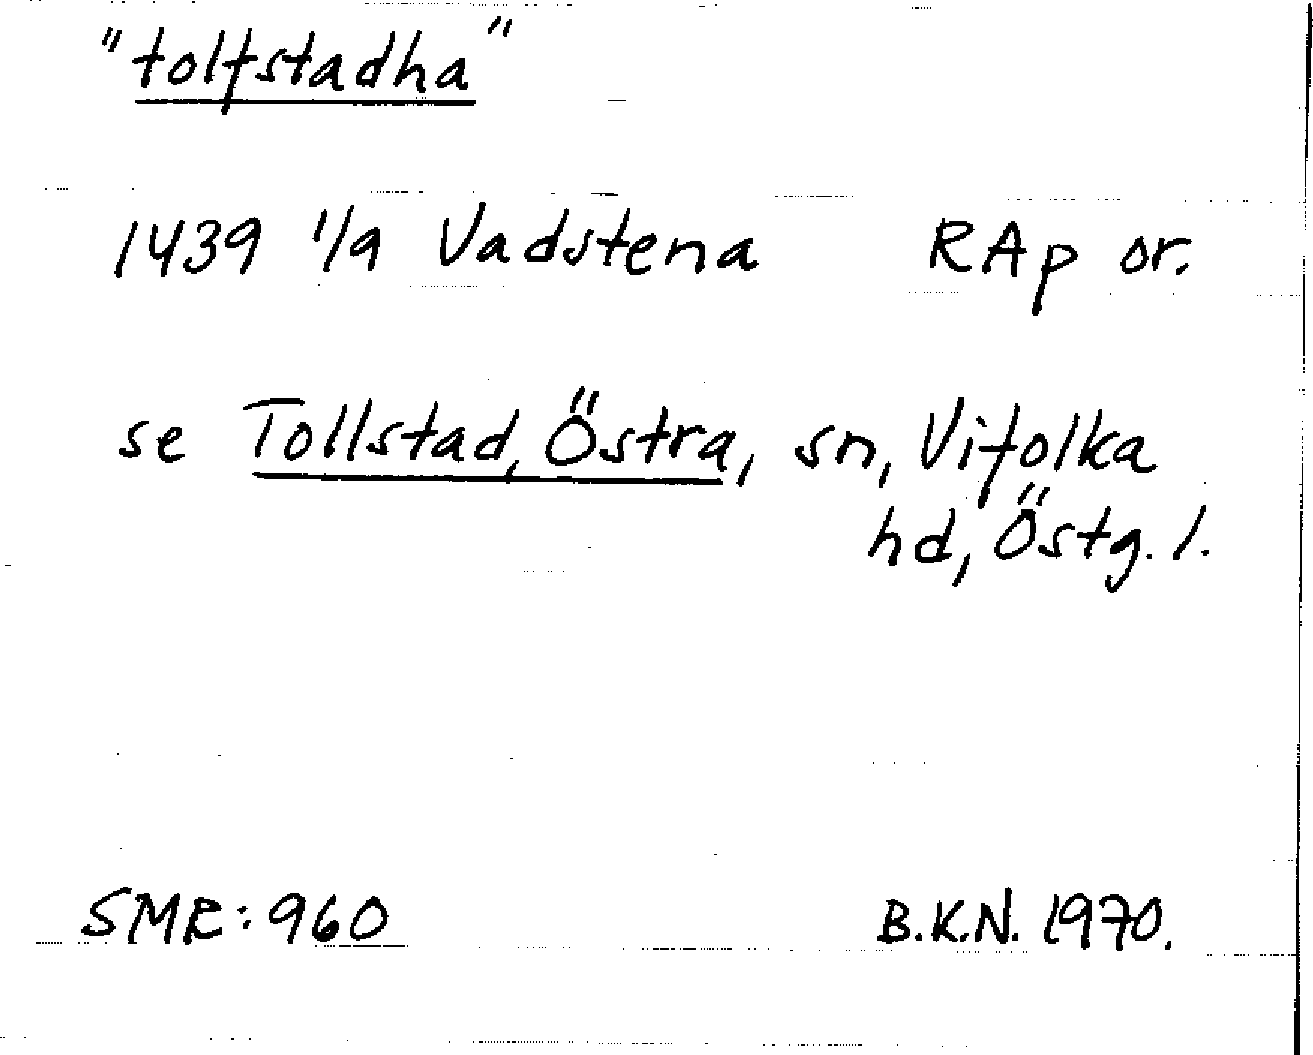 "tolfstadha"
1439 1/9 Vadstena RAp or.
se Tollstad, Östra, sn, Vifolka
hd, Östg. l.
SMR: 960 B.K.N. 1970.